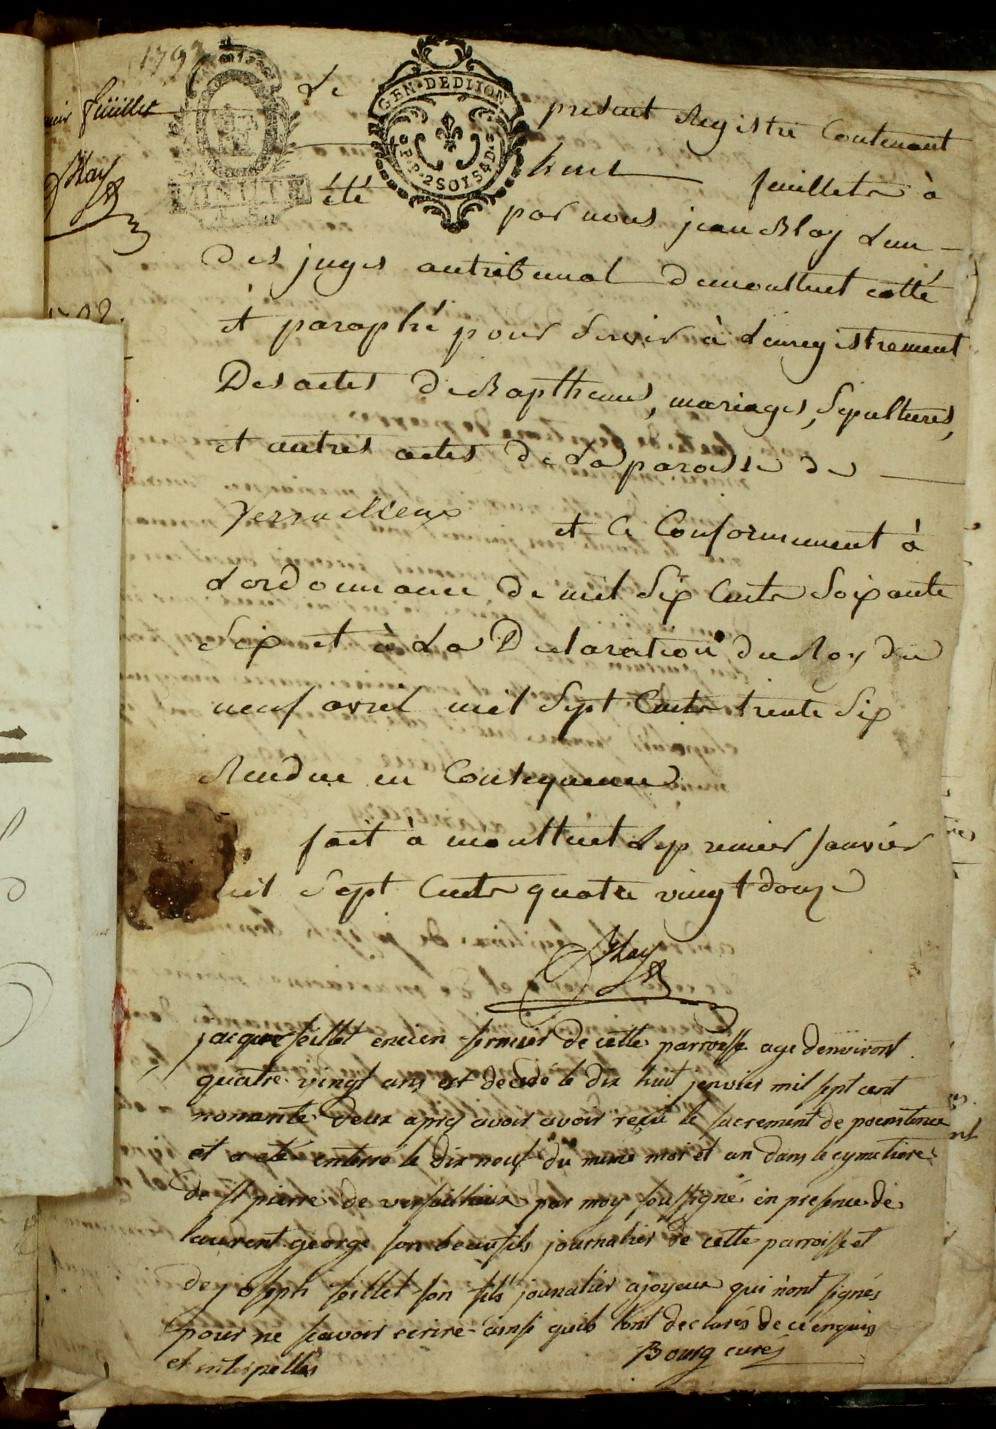 1792
feüillet
Blay
GEN · DE DIJON
2 SOLS 4 D
Le present Registre Contenant
huit feuillets à
été par nous jean Blay L'un
Des juges au tribunal De montluel cotté
et paraphé pour servir à L'enregistrement
Des actes De Bapthemes, mariages, sepultures,
et autres actes De La paroisse de
Versailleux et ce Conformement à
L'ordonnance De mil Six Cents Soixante
Six et à La Declaration du Roy du
neuf avril mil Sept Cents trente Six
Rendue en Consequence
fait à montluel Le premier Janvier
mil Sept Cents quatre vingt douze
Blay
jacque feillet encien fermier de cette parroisse age denviront
quatre vingt ans est decede le dix huit jenvier mil sept cent
nonante deux apres avoir avoir reçu le sacrement de poenitence
et a eté enterre le dix neuf du mime moi et an dans le cymetiere
de st pierre de versailleux par moy soussigné en presence de
laurent george son beaufils journalier de cette parroisse et
de joseph feillet son fils jounalier a joyeux qui n'ont signés
pour ne scavoir ecrire ainsi quils l'ont declarés de ce enquis
et interpellés
Bourg curé